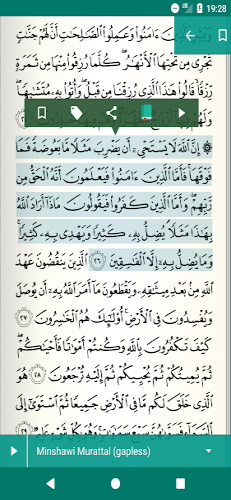 19:28
وَبَشِّرِ ٱلَّذِينَ ءَامَنُوا۟ وَعَمِلُوا۟ ٱلصَّٰلِحَٰتِ أَنَّ لَهُمْ جَنَّٰتٍ
تَجْرِى مِن تَحْتِهَا ٱلْأَنْهَٰرُ ۖ كُلَّمَا رُزِقُوا۟ مِنْهَا مِن ثَمَرَةٍ
رِّزْقًا ۙ قَالُوا۟ هَٰذَا ٱلَّذِى رُزِقْنَا مِن قَبْلُ ۖ وَأُتُوا۟ بِهِۦ مُتَشَٰبِهًا ۖ
وَلَهُمْ
۞ إِنَّ ٱللَّهَ لَا يَسْتَحْىِۦٓ أَن يَضْرِبَ مَثَلًا مَّا بَعُوضَةً فَمَا
فَوْقَهَا ۚ فَأَمَّا ٱلَّذِينَ ءَامَنُوا۟ فَيَعْلَمُونَ أَنَّهُ ٱلْحَقُّ مِن
رَّبِّهِمْ ۖ وَأَمَّا ٱلَّذِينَ كَفَرُوا۟ فَيَقُولُونَ مَاذَآ أَرَادَ ٱللَّهُ
بِهَٰذَا مَثَلًا ۘ يُضِلُّ بِهِۦ كَثِيرًا وَيَهْدِى بِهِۦ كَثِيرًا ۚ
وَمَا يُضِلُّ بِهِۦٓ إِلَّا ٱلْفَٰسِقِينَ ٢٦ ٱلَّذِينَ يَنقُضُونَ عَهْدَ
ٱللَّهِ مِنۢ بَعْدِ مِيثَٰقِهِۦ وَيَقْطَعُونَ مَآ أَمَرَ ٱللَّهُ بِهِۦٓ أَن يُوصَلَ
وَيُفْسِدُونَ فِى ٱلْأَرْضِ ۚ أُو۟لَٰٓئِكَ هُمُ ٱلْخَٰسِرُونَ ٢٧
كَيْفَ تَكْفُرُونَ بِٱللَّهِ وَكُنتُمْ أَمْوَٰتًا فَأَحْيَٰكُمْ ۖ
ثُمَّ يُمِيتُكُمْ ثُمَّ يُحْيِيكُمْ ثُمَّ إِلَيْهِ تُرْجَعُونَ ٢٨
هُوَ ٱلَّذِى خَلَقَ لَكُم مَّا فِى ٱلْأَرْضِ جَمِيعًا ثُمَّ ٱسْتَوَىٰٓ إِلَى
ٱلسَّمَآءِ فَسَوَّىٰهُنَّ سَبْعَ سَمَٰوَٰتٍ ۚ وَهُوَ بِكُلِّ شَىْءٍ عَلِيمٌ ٢٩
Minshawi Murattal (gapless)